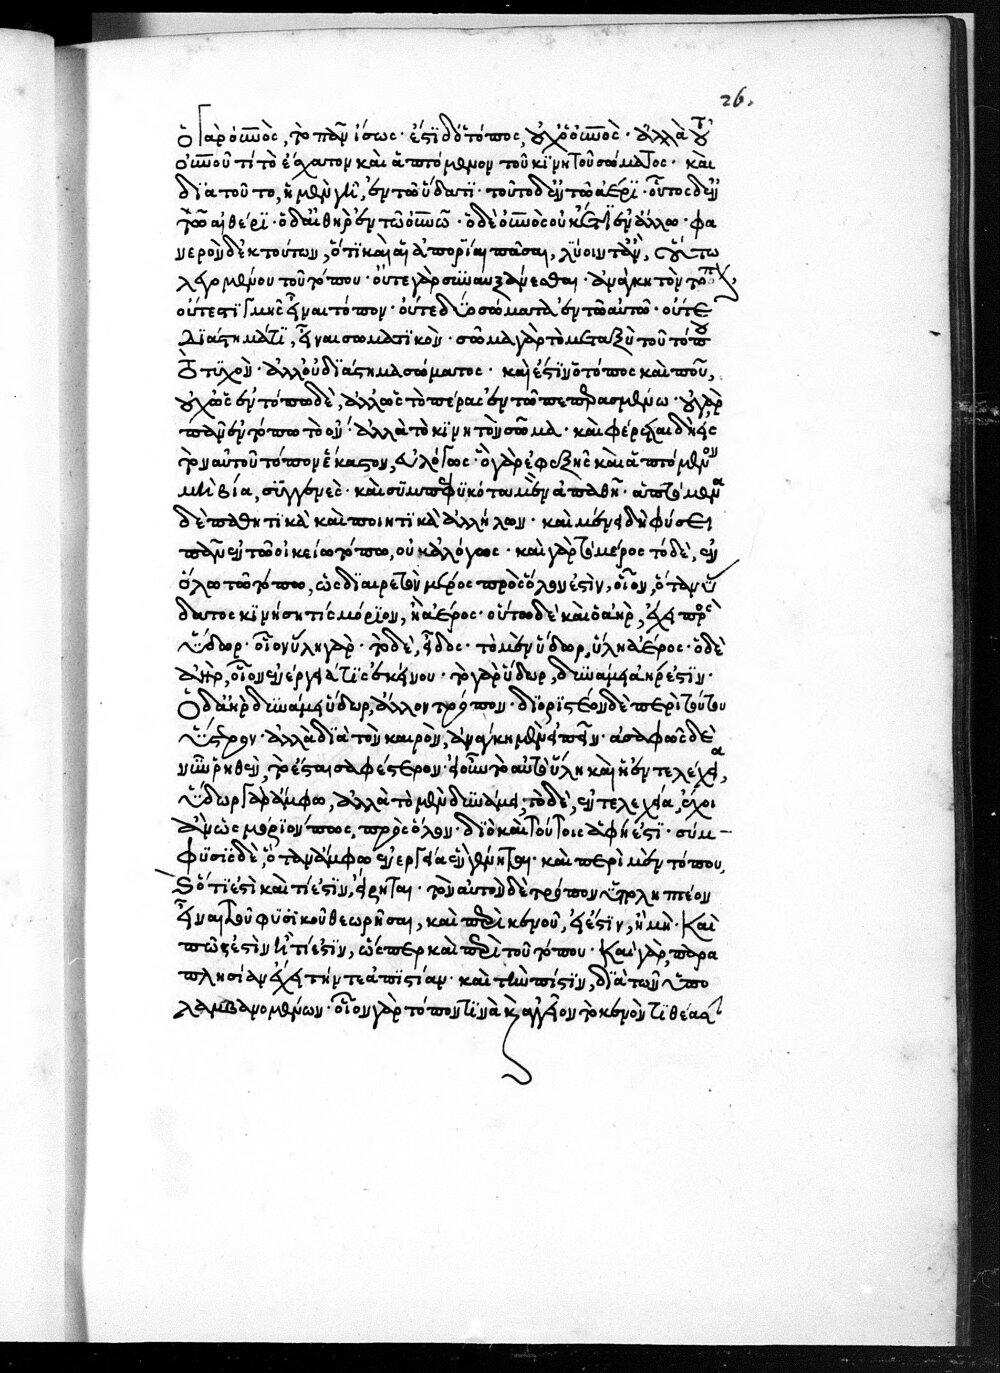 26.
Ὁ γὰρ οὐνὸς, τὸ πᾶν ἴσως· ἐστὶ δ' ὁ τόπος, οὐχ ὁ οὐνὸς· ἀλλὰ τοῦ
οὐνοῦ τί τὸ ἔσχατον καὶ ἁπτόμενον τοῦ κινητοῦ σώματος· καὶ
διατοῦτο, ἡ μὲν γῆ, ἐν τῶ ὕδατι· τοῦτο δ' ἐν τῶ ἀέρι· οὗτος δ' ἐν
τῶ αἰθέρι· ὁ δ' αἰθὴρ ἐν τῶ οὐνῶ· ὁ δὲ οὐνὸς οὐκέτι ἐν ἄλλω· φα
νερὸν δ' ἐκ τούτων, ὅτι καὶ αἱ ἀπορίαι πᾶσαι, λύοιντ' ἂν, οὕτω
λεγομένου τοῦ τόπου· οὔτε γὰρ συναυξάνεσθαι· ἀνάγκη τὸν τόπον,
οὔτε στιγμῆς εἶναι τόπον· οὔτε δύο σώματα ἐν τῶ αὐτῶ· οὔτε
διάστημά τι, εἶναι σωματικόν· σῶμα γὰρ τὸ μεταξὺ τοῦ τόπου
τὸ τυχὸν· ἀλλ' οὐ διάστημα σώματος· καὶ ἔστιν ὁ τόπος καὶ ποῦ,
οὐχ ὡς ἐν τόπω δὲ, ἀλλ' ὡς τὸ πέρας ἐν τῶ πεπερασμένω· οὐ γὰρ
πᾶν ἐν τόπω τὸ ὂν· ἀλλὰ τὸ κινητὸν σῶμα· καὶ φέρεται δὴ εἰς
τὸν αὐτοῦ τόπον ἕκαστον, εὐλόγως· ὃ γὰρ ἐφεξῆς καὶ ἁπτόμενον
μὴ βία, συγγενές· καὶ συμπεφυκότα μὲν ἀπαθῆ· ἁπτόμενα
δὲ παθητικὰ καὶ ποιητικὰ ἀλλήλων· καὶ μένει δὴ φύσει
πᾶν ἐν τῶ οἰκείω τόπω, οὐκ ἀλόγως· καὶ γὰρ τὸ μέρος τόδε, ἐν
ὅλω τῶ τόπω, ὡς διαιρετὸν μέρος πρὸς ὅλον ἐστὶν, οἷον, ὅταν ὕ
δατος κινήση τίς μόριον, ἢ ἀέρος· οὕτω δὲ καὶ ὁ ἀὴρ, ἔχει πρὸς
ὕδωρ· οἷον ὕλη γὰρ· τὸ δὲ, εἶδος· τὸ μὲν ὕδωρ, ὕλη ἀέρος· ὁ δὲ
ἀὴρ, οἷον ἐνέργειά τις ἐκείνου· τὸ γὰρ ὕδωρ, δυνάμει ἀήρ ἐστιν·
Ὁ δ' ἀὴρ δυνάμει ὕδωρ, ἄλλον τρόπον· διοριστέον δὲ περὶ τούτων
ὕστερον· ἀλλὰ διὰ τὸν καιρὸν, ἀνάγκη μὲν εἰπεῖν· ἀσαφῶς δὲ
νῦν ῥηθὲν, τὸτ' ἔσται σαφέστερον· εἰ οὖν τὸ αὐτὸ ὕλη καὶ ἡ ἐντελέχεια,
ὕδωρ γὰρ ἄμφω, ἀλλὰ τὸ μὲν δυνάμει, τὸ δὲ, ἐντελεχεία, ἔχοι
ἂν ὡς μόριόν πως, πρὸς ὅλον· διὸ καὶ τούτοις ἁφή ἐστι· σύμ-
φυσις δὲ, ὅταν ἄμφω ἐνεργεία ἓν γένηται· καὶ περὶ μὲν τόπου,
ὅτι ἐστὶ καὶ τί ἐστιν, εἴρηται· τὸν αὐτὸν δὲ τρόπον ὑποληπτέον
εἶναι τοῦ φυσικοῦ θεωρῆσαι, καὶ περὶ κενοῦ, εἰ ἔστιν, ἢ μὴ· Καὶ
πῶς ἐστὶν ἢ τί ἐστιν, ὥσπερ καὶ περὶ τοῦ τόπου· Καὶ γὰρ, παρα
πλησίαν ἔχει τήν τε ἀπιστίαν· καὶ τὴν πίστιν, διὰ τῶν ὑπο
λαμβανομένων· οἷον γὰρ τόπον τινὰ καὶ ἀγγεῖον τὸ κενὸν τιθέασι